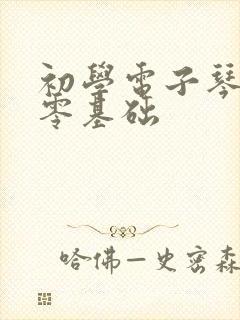 初學電子琴
零基础
哈佛—史密森